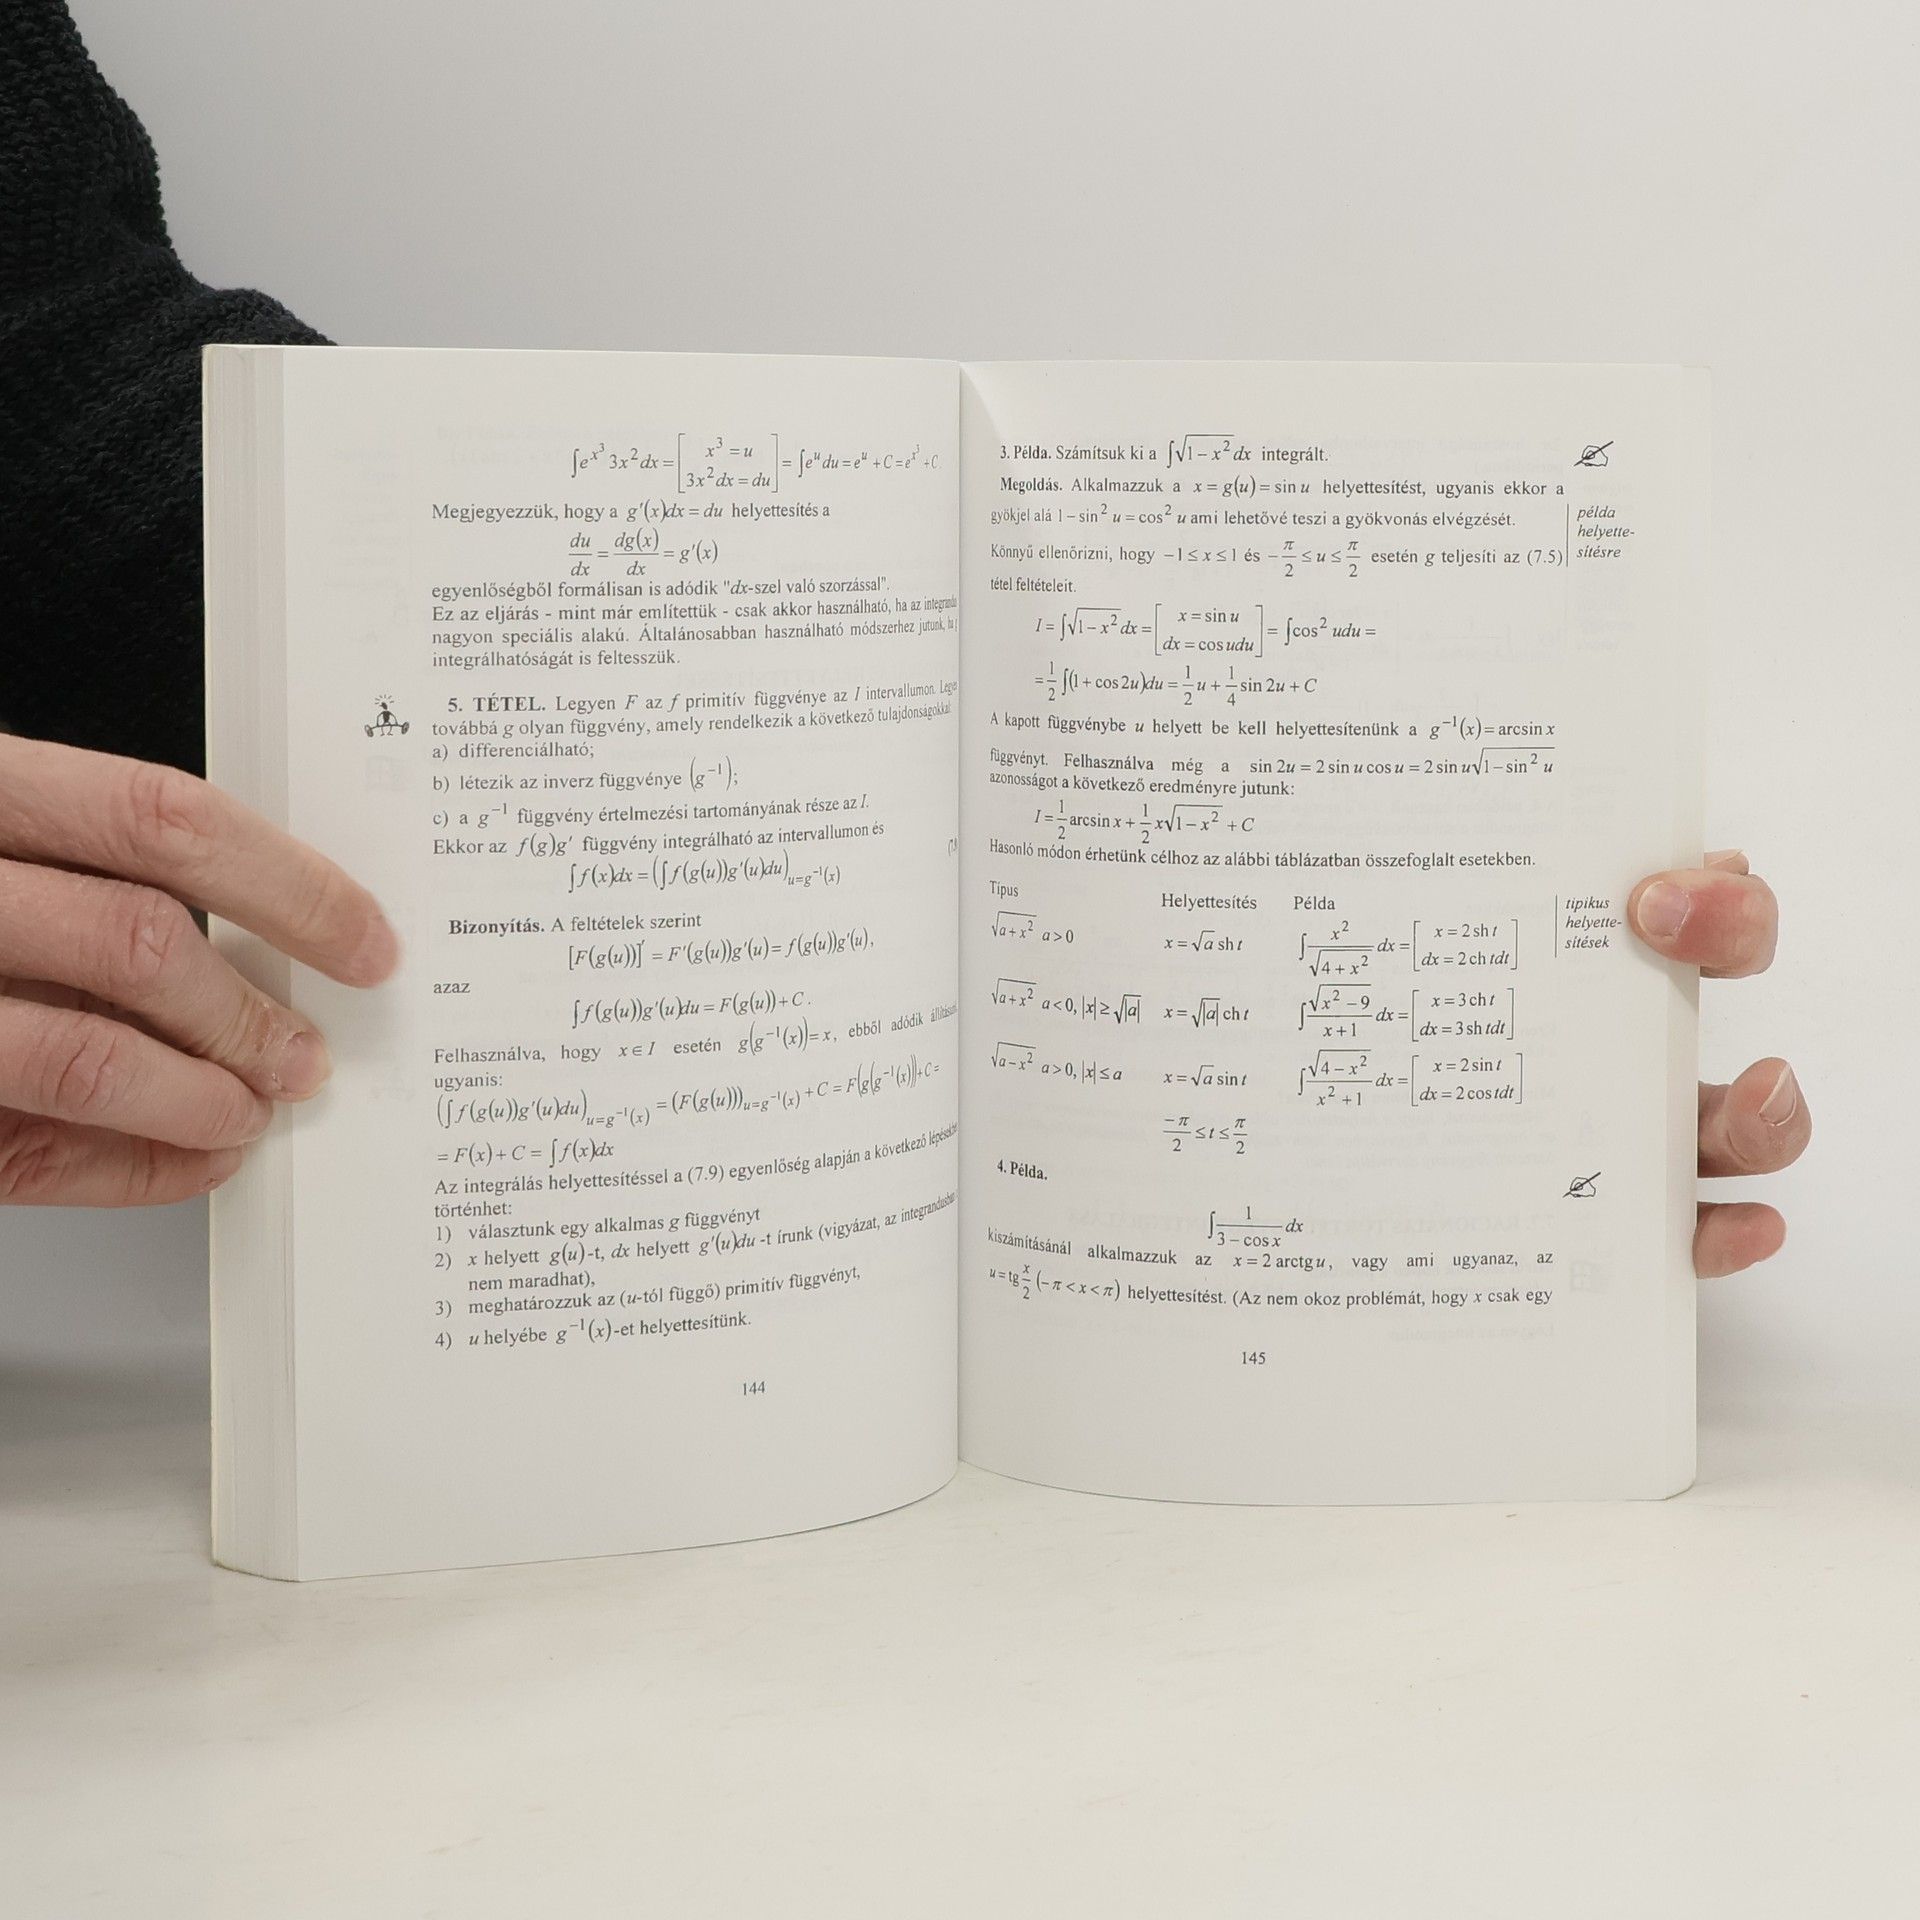 ∫e^{x³} 3x² dx = [x³ = u; 3x² dx = du] = ∫e^u du = e^u + C = e^{x³} + C
Megjegyezzük, hogy a g′(x)dx = du helyettesítés a
du/dx = dg(x)/dx = g′(x)
egyenlőségből formálisan is adódik "dx-szel való szorzással".
Ez az eljárás - mint már említettük - csak akkor használható, ha az
nagyon speciális alakú. Általánosabban használható módszerhez jutunk, ha
integrálhatóságát is feltesszük.
5. TÉTEL. Legyen F az f primitív függvénye az I intervallumon. Legyen
továbbá g olyan függvény, amely rendelkezik a következő tulajdonságokkal:
a) differenciálható;
b) létezik az inverz függvénye (g⁻¹);
c) a g⁻¹ függvény értelmezési tartományának része az I.
Ekkor az f(g)g′ függvény integrálható az intervallumon és
∫f(x)dx = (∫f(g(u))g′(u)du)_{u=g⁻¹(x)}
Bizonyítás. A feltételek szerint
[F(g(u))]′ = F′(g(u))g′(u) = f(g(u))g′(u),
azaz
∫f(g(u))g′(u)du = F(g(u)) + C.
Felhasználva, hogy x∈I esetén g(g⁻¹(x)) = x, ebből adódik
ugyanis:
(∫f(g(u))g′(u)du)_{u=g⁻¹(x)} = (F(g(u)))_{u=g⁻¹(x)} + C = F(g(g⁻¹(x))) + C =
= F(x) + C = ∫f(x)dx
Az integrálás helyettesítéssel a (7.9) egyenlőség alapján a következő
történhet:
1) választunk egy alkalmas g függvényt
2) x helyett g(u)-t, dx helyett g′(u)du -t írunk (vigyázat, az
nem maradhat),
3) meghatározzuk az (u-tól függő) primitív függvényt,
4) u helyébe g⁻¹(x)-et helyettesítünk.
144
3. Példa. Számítsuk ki a ∫√(1 − x²) dx integrált.
Megoldás. Alkalmazzuk a x = g(u) = sin u helyettesítést, ugyanis ekkor a
gyökjel alá 1 − sin² u = cos² u ami lehetővé teszi a gyökvonás elvégzését.
Könnyű ellenőrizni, hogy −1 ≤ x ≤ 1 és −π/2 ≤ u ≤ π/2 esetén g teljesíti az (7.5)
tétel feltételeit.
példa
helyette-
sítésre
I = ∫√(1 − x²) dx = [x = sin u; dx = cos udu] = ∫cos² udu =
= 1/2 ∫(1 + cos 2u)du = 1/2 u + 1/4 sin 2u + C
A kapott függvénybe u helyett be kell helyettesítenünk a g⁻¹(x) = arcsin x
függvényt. Felhasználva még a sin 2u = 2 sin u cos u = 2 sin u√(1 − sin² u)
azonosságot a következő eredményre jutunk:
I = 1/2 arcsin x + 1/2 x√(1 − x²) + C
Hasonló módon érhetünk célhoz az alábbi táblázatban összefoglalt esetekben.
Típus Helyettesítés Példa
√(a+x²) a > 0 x = √a sh t ∫ x²/√(4 + x²) dx = [x = 2 sh t; dx = 2 ch tdt]
√(a+x²) a < 0, |x| ≥ √|a| x = √|a| ch t ∫ √(x² − 9)/(x + 1) dx = [x = 3 ch t; dx = 3 sh tdt]
√(a−x²) a > 0, |x| ≤ a x = √a sin t ∫ √(4 − x²)/(x² + 1) dx = [x = 2 sin t; dx = 2 cos tdt]
−π/2 ≤ t ≤ π/2
tipikus
helyette-
sítések
4. Példa.
∫ 1/(3 − cos x) dx
kiszámításánál alkalmazzuk az x = 2 arctg u, vagy ami ugyanaz, az
u = tg x/2 (−π < x < π) helyettesítést. (Az nem okoz problémát, hogy x csak egy
145